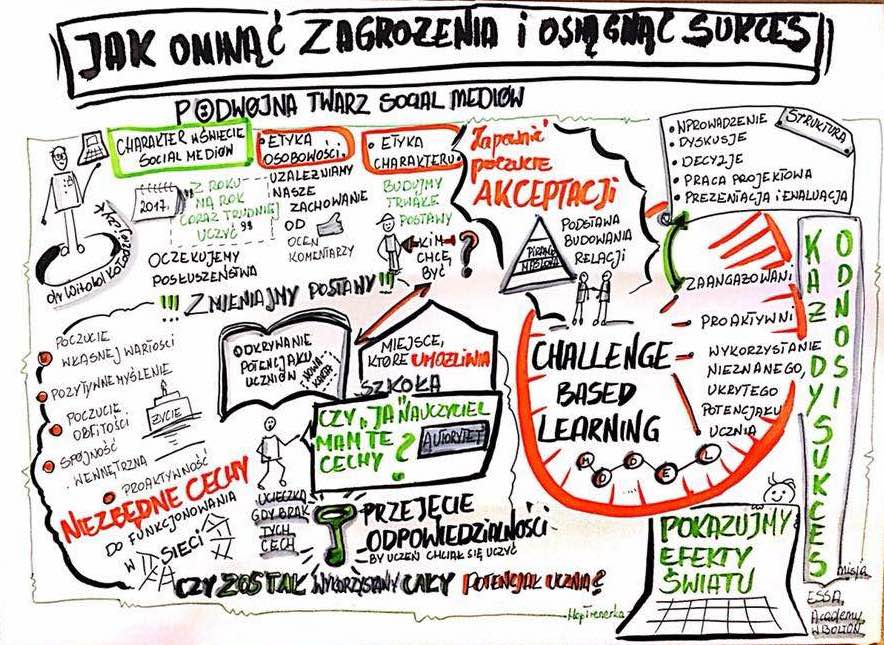 JAK OMINĄĆ ZAGROŻENIA I OSIĄGNĄĆ SUKCES
PODWÓJNA TWARZ SOCIAL MEDIÓW
CHARAKTER W ŚWIECIE
SOCIAL MEDIÓW
dr Witold Kołodziejczyk
2017.
"Z ROKU
NA ROK
CORAZ TRUDNIEJ
UCZYĆ"
OCZEKUJEMY
POSŁUSZEŃSTWA
• ETYKA
OSOBOWOŚCI.
UZALEŻNIAMY
NASZE
ZACHOWANIE
OD
OCEN
KOMENTARZY
• ETYKA
CHARAKTERU
BUDUJMY
TRWAŁE
POSTAWY
KIM
CHCĘ
BYĆ
?
!!! ZMIENIAJMY POSTAWY!!!
Zapewnić
poczucie
AKCEPTACJI
PIRAMIDA
MASLOWA
PODSTAWA
BUDOWANIA
RELACJI
STRUKTURA
• WPROWADZENIE
• DYSKUSJE
• DECYZJE
• PRACA PROJEKTOWA
• PREZENTACJA I EWALUACJA
ZAANGAŻOWANI
PROAKTYWNI
WYKORZYSTANIE
NIEZNANEGO,
UKRYTEGO
POTENCJAŁU
UCZNIA
CHALLENGE
BASED
LEARNING
MODEL
KAŻDY
ODNOSI
SUKCES
POCZUCIE
WŁASNEJ WARTOŚCI
POZYTYWNE MYŚLENIE
POCZUCIE
OBFITOŚCI
SPÓJNOŚĆ
WEWNĘTRZNA
PROAKTYWNOŚĆ
ŻYCIE
NIEZBĘDNE CECHY
DO FUNKCJONOWANIA
W SIECI
ODKRYWANIE
POTENCJAŁU
UCZNIÓW
NOWA
KARTA
MIEJSCE,
KTÓRE UMOŻLIWIA
SZKOŁA
CZY "JA" NAUCZYCIEL
MAM TE
CECHY?
AUTORYTET
UCIECZKA
GDY BRAK
TYCH
CECH
PRZEJĘCIE
ODPOWIEDZIALNOŚCI
BY UCZEŃ CHCIAŁ SIĘ UCZYĆ
CZY ZOSTAŁ WYKORZYSTANY CAŁY POTENCJAŁ UCZNIA?
HopTrenerka
POKAZUJMY
EFEKTY
ŚWIATU
misja
ESSA
Academy
W BOLTON